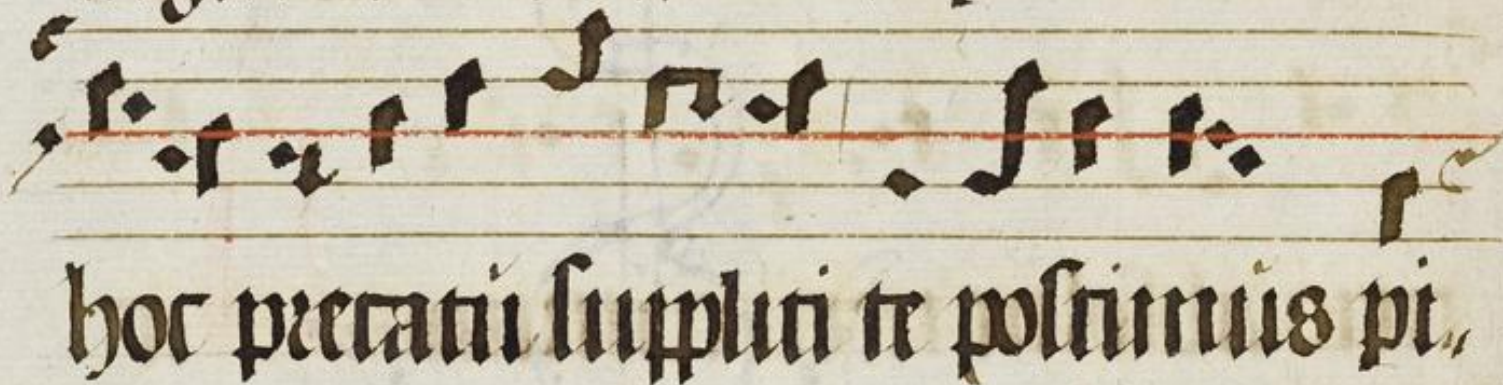 hoc precatu suppliti te postimus pi„